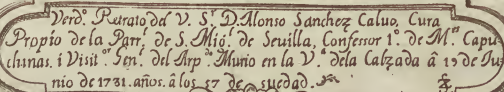 Verd.º Retrato del V. S.r D. Alonso Sanchez Caluo, Cura
Propio de la Parr.l de S. Mig.l de Seuilla, Confessor 1.º de M.es Capu
chinas. i Visit.or Gen.l del Arp.do Murio en la V. de la Calzada â 19 de Ju
nio de 1731. años. â los 57 de su edad.